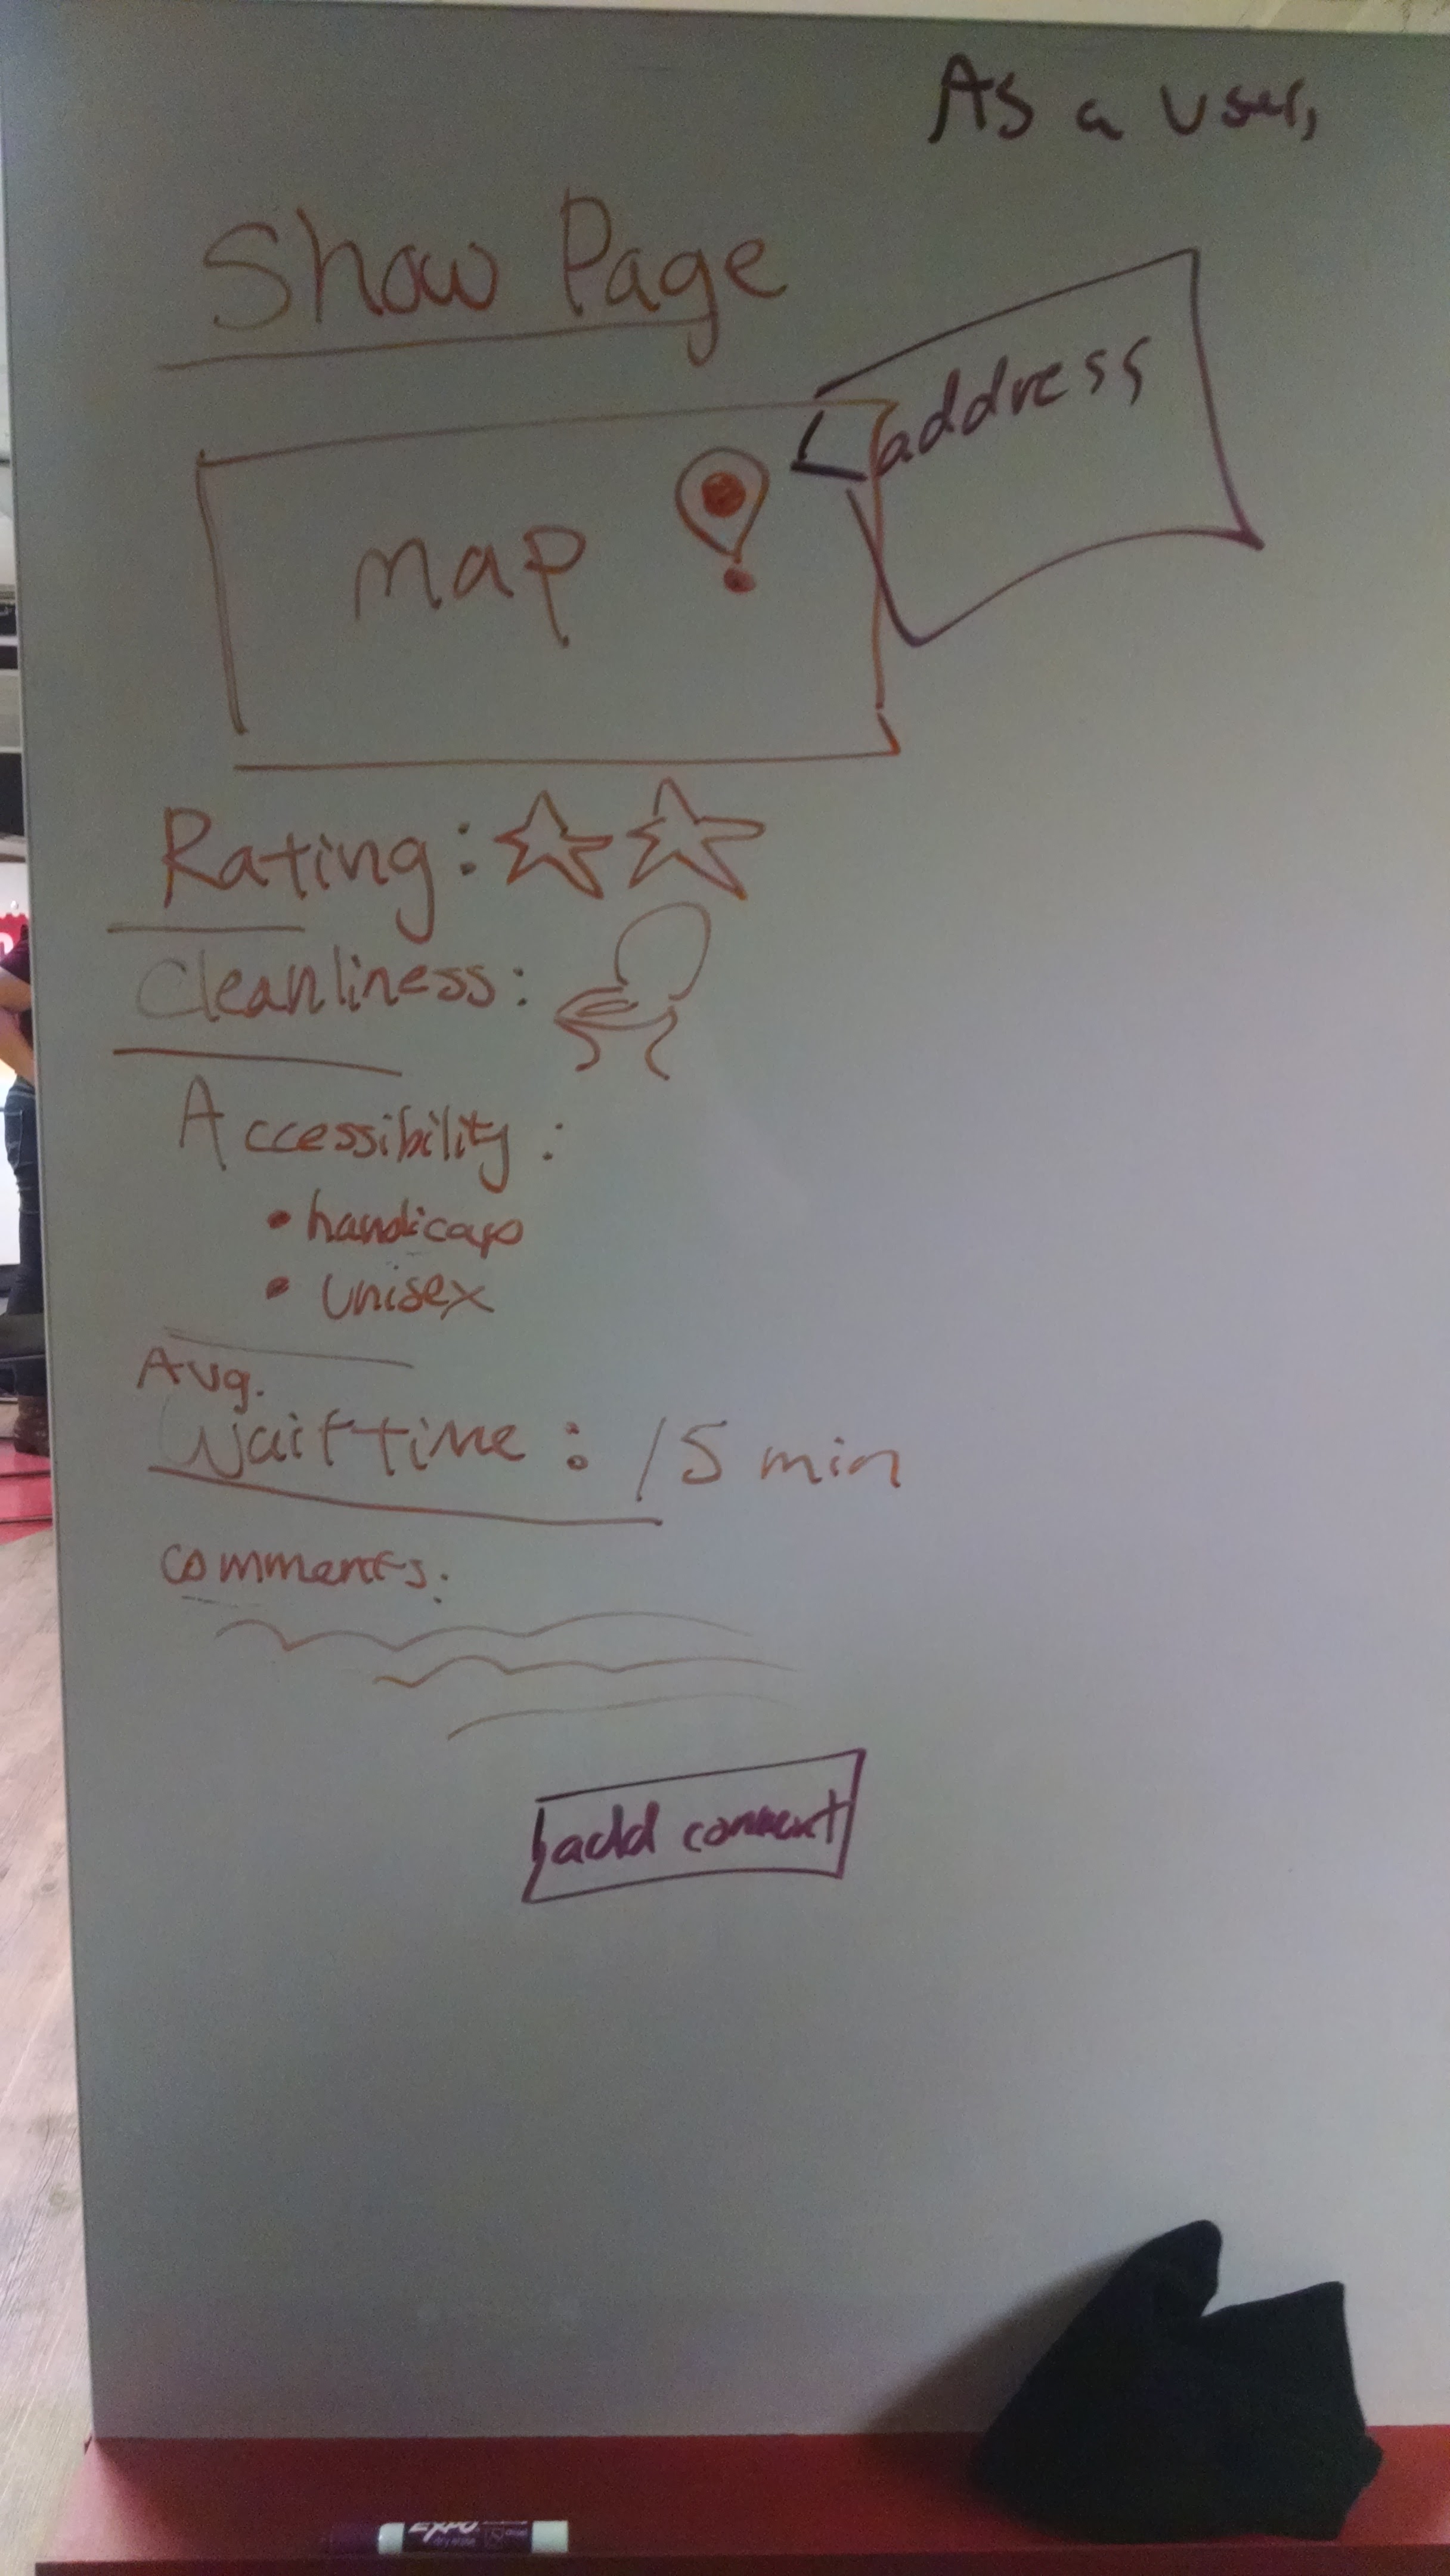 As a user,
Show Page
address
map
Rating:
Cleanliness:
Accessibility:
• handicap
• unisex
Avg.
Wait time: 15 min
comments:
add comment
EXPO
dry erase